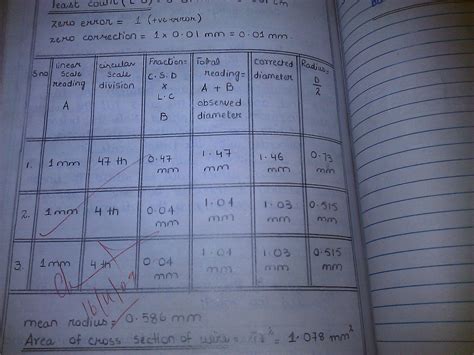 least count (L.C) =
zero error = 1 (+ve error)
zero correction = 1 x 0.01 mm = 0.01 mm.
S.no
linear scale reading A
circular scale division
Fraction= C.S.D x L.C B
Total reading= A + B observed diameter
corrected diameter
Radius= D/2
1. 1mm 47 th 0.47 mm 1.47 mm 1.46 mm 0.73 mm
2. 1mm 4 th 0.04 mm 1.04 mm 1.03 mm 0.515 mm
3. 1mm 4 th 0.04 mm 1.04 mm 1.03 mm 0.515 mm
mean radius = 0.586 mm
Area of cross section of wire = πr² = 1.078 mm²